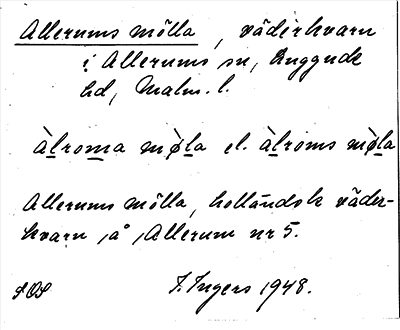 Allerums mölla, väderkvarn
i Allerums sn, Luggude
hd, Malm. l.
àlroma mø̀la el. àlroms mø̀la
Allerums mölla, holländsk väder-
kvarn, å, Allerum nr 5.
SOS I. Ingers 1948.